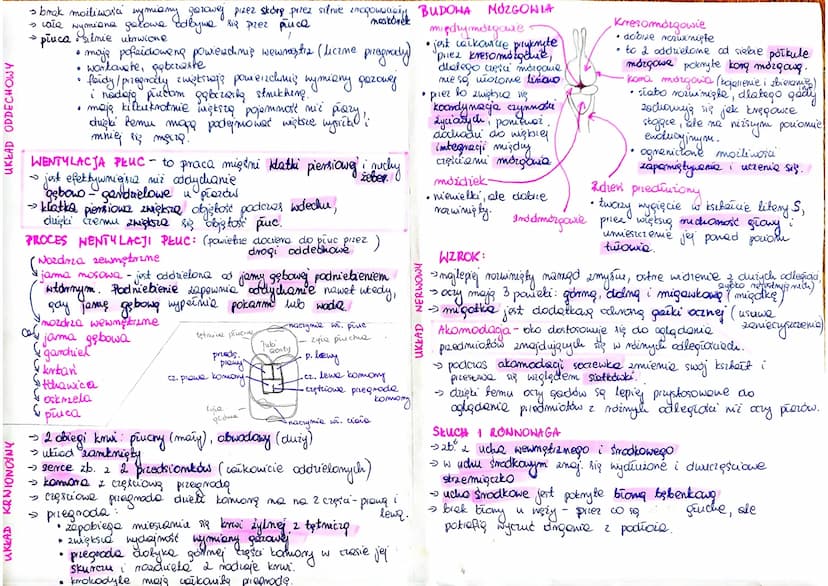 UKŁAD ODDECHOWY
→ brak możliwości wymiany gazowej przez skórę przez silnie zrogowaciały naskórek
→ cała wymiana gazowa odbywa się przez płuca
→ płuca silnie ukrwione
• mają pofałdowaną powierzchnię wewnątrz (liczne przegrody)
• workowate, gąbczaste
• fałdy/przegrody zwiększają powierzchnię wymiany gazowej
i nadają płucom gąbczastą strukturę.
• mają kilkukrotnie większą pojemność niż płazy
dzięki temu mogą podejmować większe wysiłki i
mniej się męczą.
WENTYLACJA PŁUC - to praca mięśni klatki piersiowej i ruchy żeber
→ jest efektywniejsza niż oddychanie
gębowo - gardzielowe u płazów
→ klatka piersiowa zwiększa objętość podczas wdechu,
dzięki czemu zwiększa się objętość płuc.
PROCES WENTYLACJI PŁUC: (powietrze dociera do płuc przez drogi oddechowe)
nozdrza zewnętrzne
jama nosowa - jest oddzielona od jamy gębowej podniebieniem
wtórnym. Podniebienie zapewnia oddychanie nawet wtedy,
gdy jamę gębową wypełnia pokarm lub woda
nozdrza wewnętrzne
jama gębowa
gardziel
krtań
tchawica
oskrzela
płuca
naczynia wł. płuc
tętnica płucna
żyła płucna
łuki aorty
przeds. prawy
p. lewy
cz. prawa komory
cz. lewa komory
częściowa przegroda komory
żyła główna
naczynia wł. ciała
UKŁAD KRWIONOŚNY
→ 2 obiegi krwi: płucny (mały), obwodowy (duży)
→ układ zamknięty
→ serce zb. z 2 przedsionków (całkowicie oddzielonych)
→ komora z częściową przegrodą
→ częściowa przegroda dzieli komorę na 2 części - prawą i lewą.
→ przegroda:
• zapobiega mieszaniu się krwi żylnej z tętniczą
• zwiększa wydajność wymiany gazowej
• przegroda dotyka górnej części komory w czasie jej
skurczu i rozdziela 2 rodzaje krwi.
• krokodyle mają całkowitą przegrodę.
BUDOWA MÓZGOWIA
międzymózgowie
• jest całkowicie przykryte
przez kresomózgowie,
dlatego części mózgowia
nie są ułożone liniowo
• przez to zwiększa się
koordynacja czynności
życiowych, ponieważ
dochodzi do większej
integracji między
częściami mózgowia
móżdżek
• niewielki, ale dobrze
rozwinięty.
śródmózgowie
kresomózgowie
• dobrze rozwinięte
• to 2 oddzielone od siebie półkule
mózgowe pokryte korą mózgową.
kora mózgowa (łączenie i zbieranie)
• słabo rozwinięta, dlatego gady
zachowują się jak kręgowce
stojące, ale na niższym poziomie
ewolucyjnym.
• ograniczone możliwości
zapamiętywania i uczenia się.
Rdzeń przedłużony
• tworzy wygięcie w kształcie litery S,
przez większą ruchomość głowy i
umieszczenie jej ponad poziom
tułowia.
UKŁAD NERWOWY
WZROK:
→ najlepiej rozwinięty narząd zmysłu, ostre widzenie z dużych odległości
→ oczy mają 3 powieki: górną, dolną i migawkową (migotkę)
→ migotka jest dodatkową ochroną gałki ocznej (usuwa zanieczyszczenia)
Akomodacja - oko dostosowuje się do oglądania
przedmiotów znajdujących się w różnych odległościach.
→ podczas akomodacji soczewka zmienia swój kształt i
przesuwa się względem siatkówki.
→ dzięki temu oczy gadów są lepiej przystosowane do
oglądania przedmiotów z różnych odległości niż oczy płazów.
SŁUCH I RÓWNOWAGA
→ zb. z ucha wewnętrznego i środkowego
→ w uchu środkowym znaj. się wydłużone i dwuczęściowe
strzemiączko
→ ucho środkowe jest pokryte błoną bębenkową
→ brak błony u węży - przez co są głuche, ale
potrafią wyczuć drgania z podłoża.